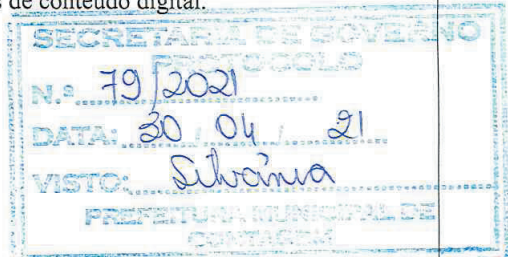 s de conteúdo digital.
SECRETARIA DE GOVERNO
PROTOCOLO
N.º 79/2021
DATA: 30 / 04 / 21
VISTO: Silvânia
PREFEITURA MUNICIPAL DE
CONTAGEM